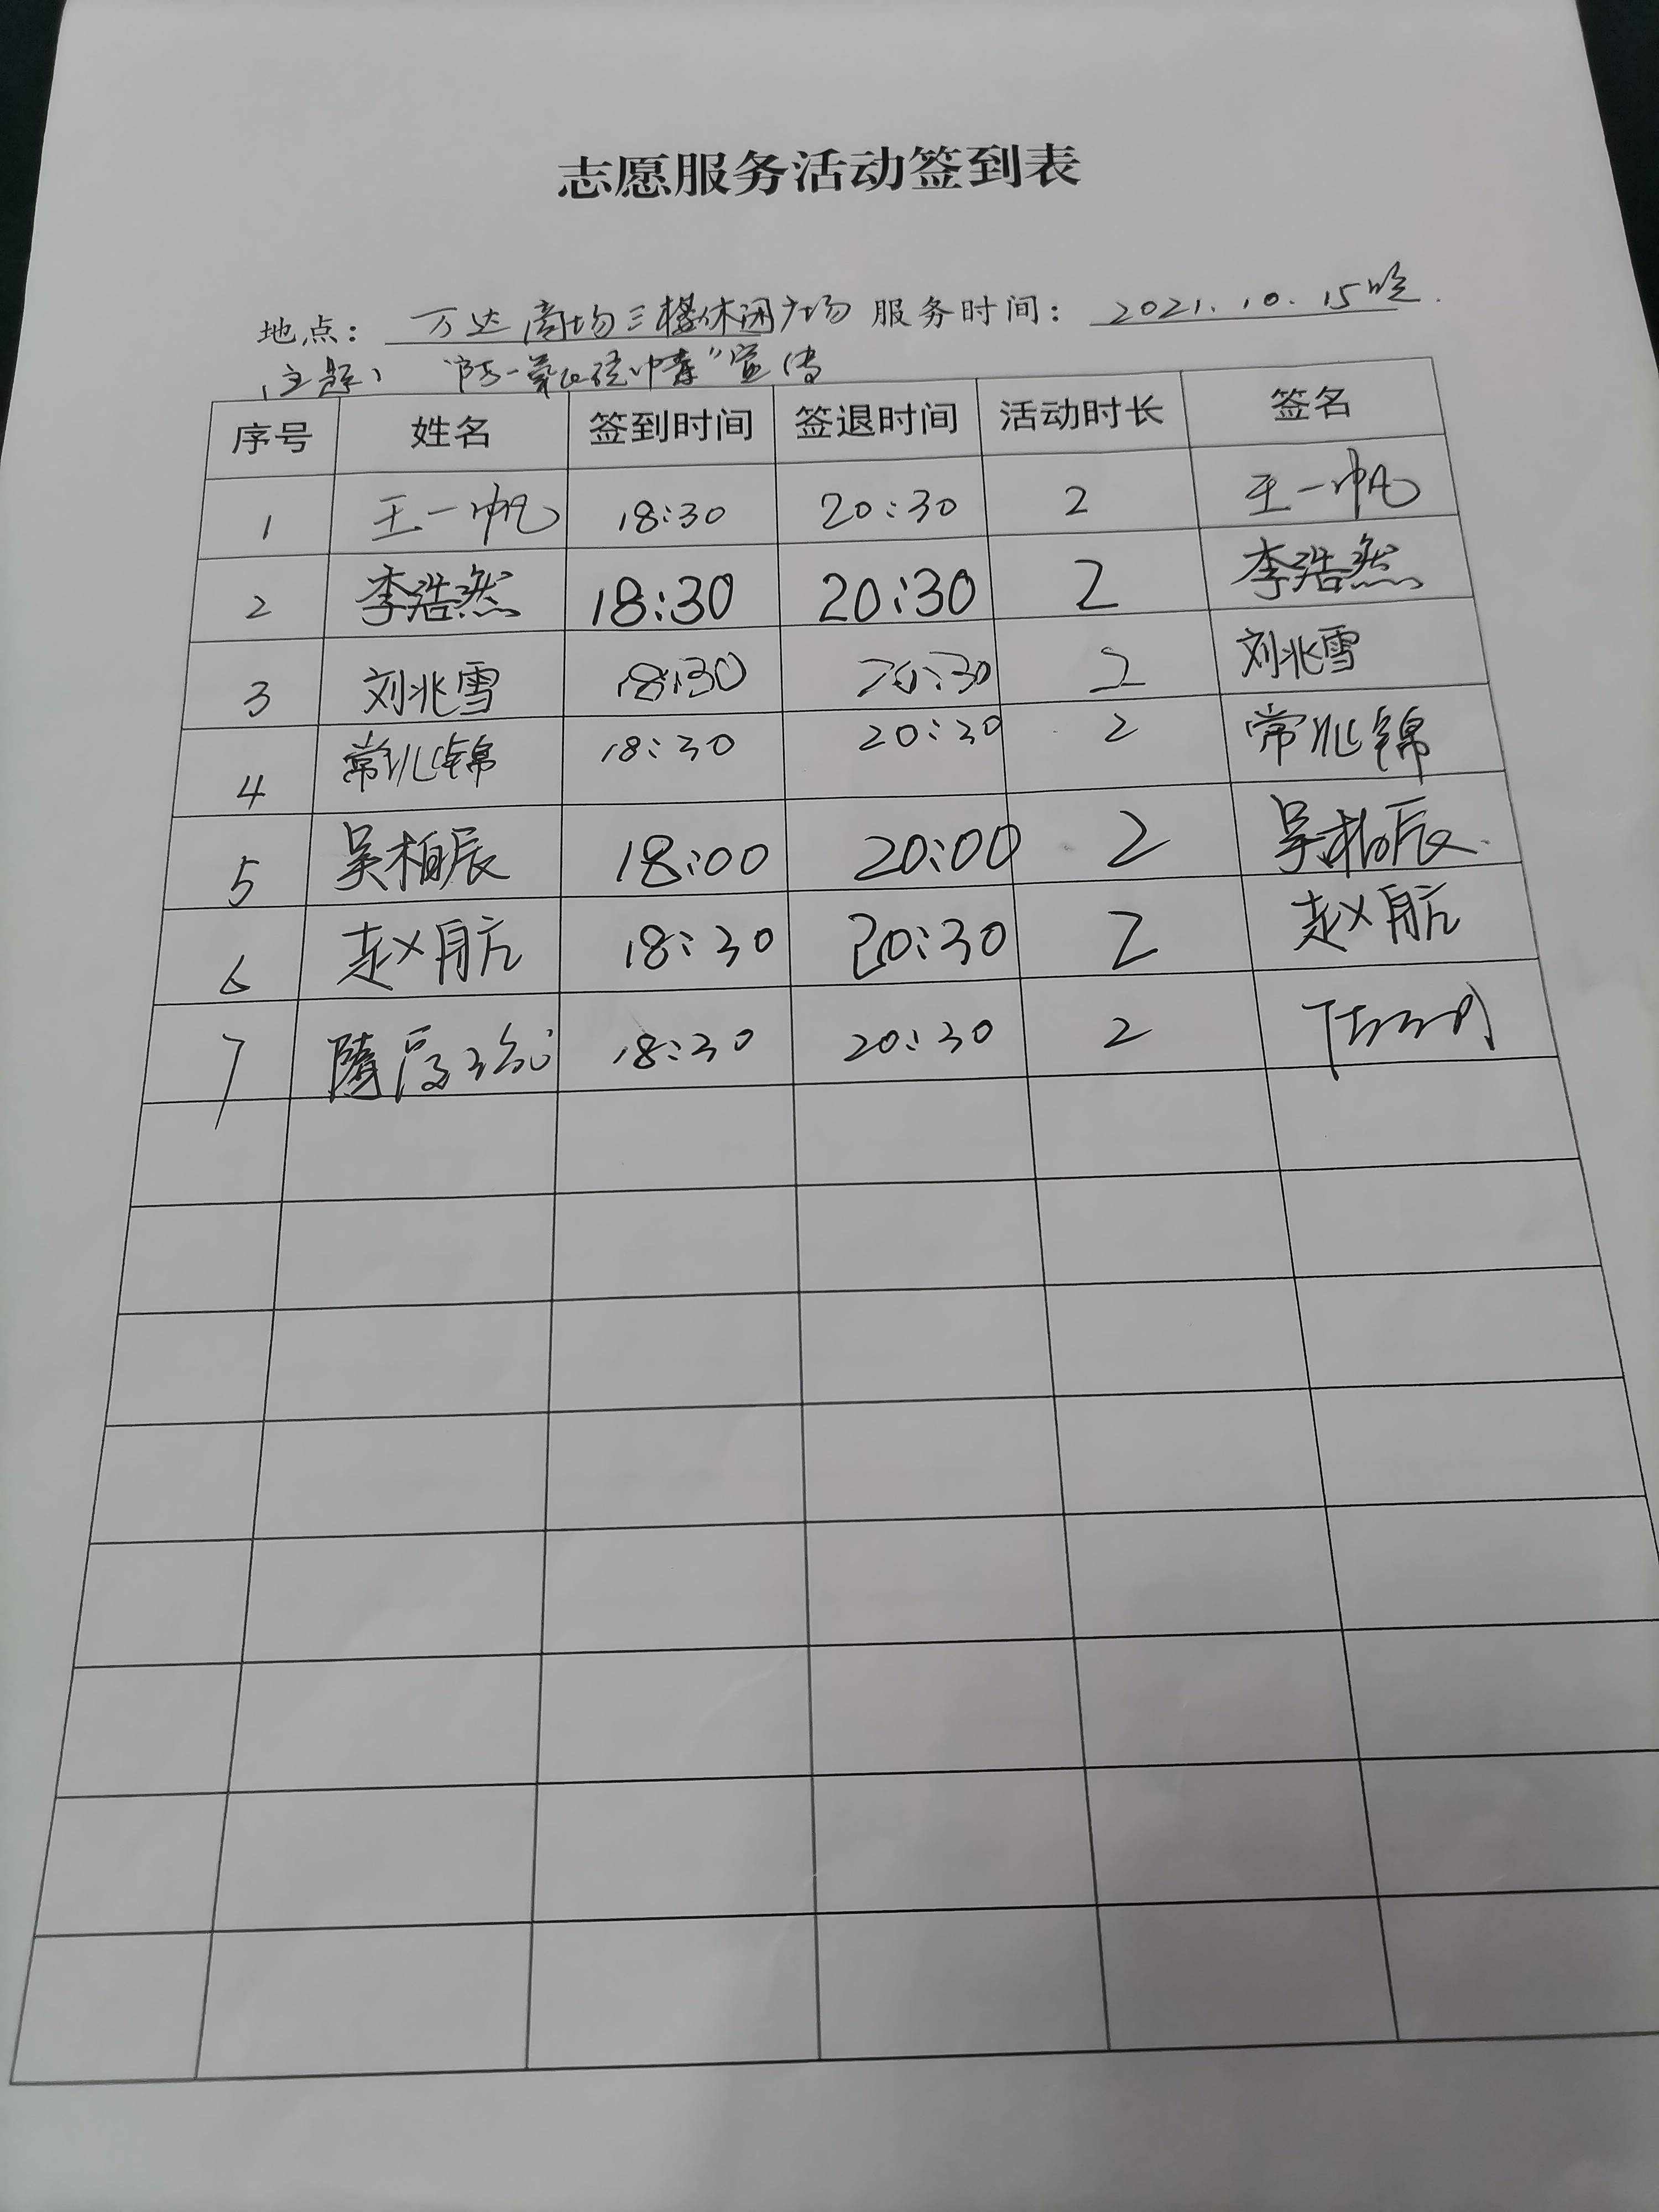 志愿服务活动签到表
地点： 万达商场三楼休闲广场 服务时间： 2021.10.15晚.
主题： "防一氧化碳中毒"宣传
序号 姓名 签到时间 签退时间 活动时长 签名
1 王一帆 18:30 20:30 2 王一帆
2 李浩然 18:30 20:30 2 李浩然
3 刘兆雪 18:30 20:30 2 刘兆雪
4 常兆锦 18:30 20:30 2 常兆锦
5 吴柏辰 18:00 20:00 2 吴柏辰
6 赵航 18:30 20:30 2 赵航
7 隋 18:30 20:30 2